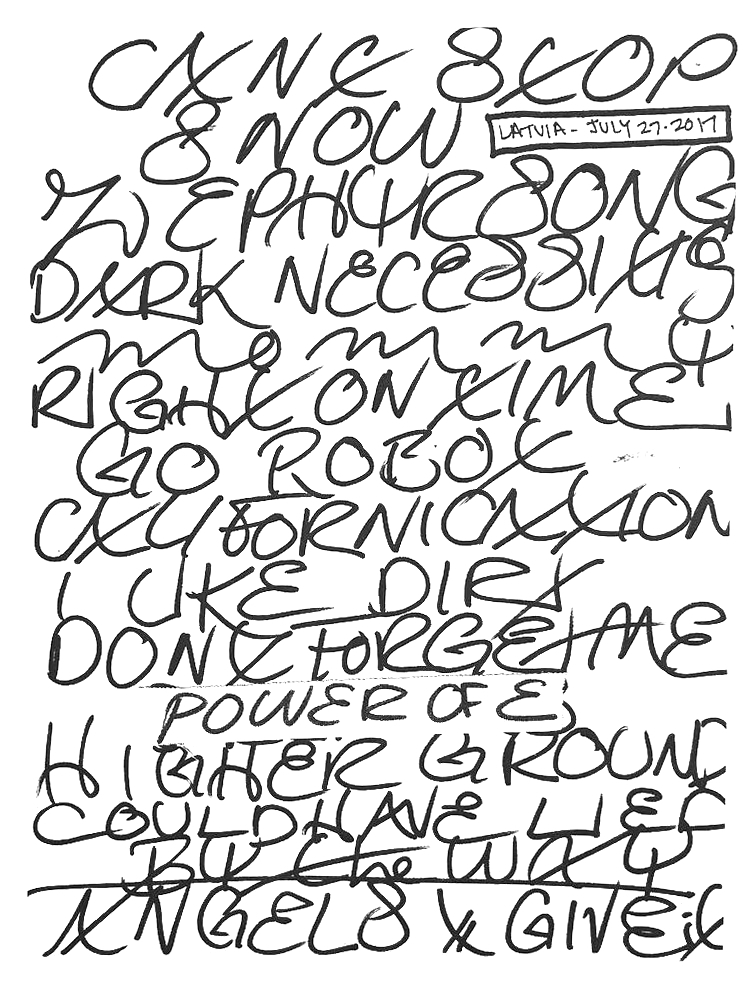 CANT STOP
SNOW
LATVIA - JULY 27.2017
ZEPHYR SONG
DARK NECESSITIS
RIGHT ON TIME
GO ROBOT
CALIFORNICATION
I LIKE DIRT
DONT FORGET ME
POWER OF E
HIGHER GROUND
COULD HAVE LIED
BY the WAY
ANGELS X GIVE it